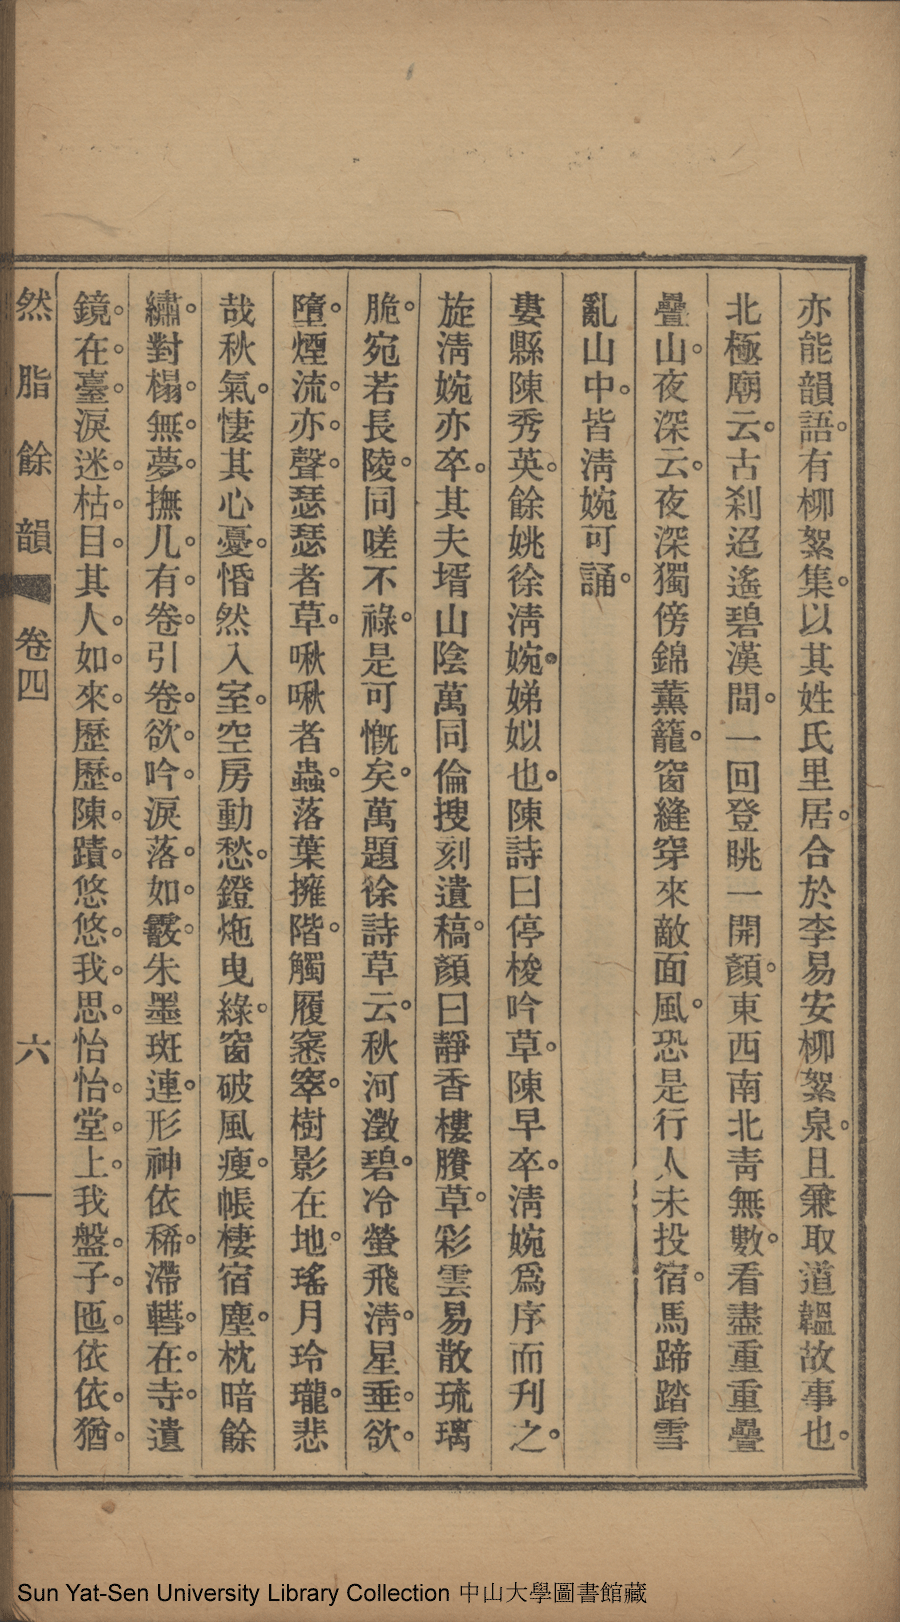 亦能韻語。有柳絮集。以其姓氏里居。合於李易安柳絮泉。且兼取道韞故事也。
北極廟云。古刹迢遙碧漢間。一回登眺一開顏。東西南北靑無數。看盡重重疊
疊山。夜深云。夜深獨傍錦薰籠。窗縫穿來敵面風。恐是行人未投宿。馬蹄踏雪
亂山中。皆淸婉可誦。
婁縣陳秀英。餘姚徐淸婉。娣姒也。陳詩曰停梭吟草。陳早卒。淸婉爲序而刋之。
旋淸婉亦卒。其夫壻山陰萬同倫搜刻遺稿。顏曰靜香樓賸草。彩雲易散琉璃
脆。宛若長陵。同嗟不祿。是可慨矣。萬題徐詩草云。秋河澂碧。冷螢飛淸。星垂。欲。
墮。煙流。亦。聲。瑟瑟者草。啾啾者蟲。落葉擁階。觸履窸窣。樹影在地。瑤月玲瓏。悲
哉秋氣。悽其心憂。惛然入室。空房動愁。鐙炧曳綠。窗破風瘦。帳棲宿塵。枕暗餘
繡。對榻。無。夢。撫几。有。卷。引卷。欲。吟。淚落。如。霰。朱墨斑連。形神依稀。滯轊。在。寺。遺
鏡。在。臺。淚迷。枯。目。其人。如。來。歷歷。陳。蹟。悠悠。我。思。怡怡。堂。上。我盤。子。匜。依依。猶。
然脂餘韻
卷四
六
Sun Yat-Sen University Library Collection 中山大學圖書館藏